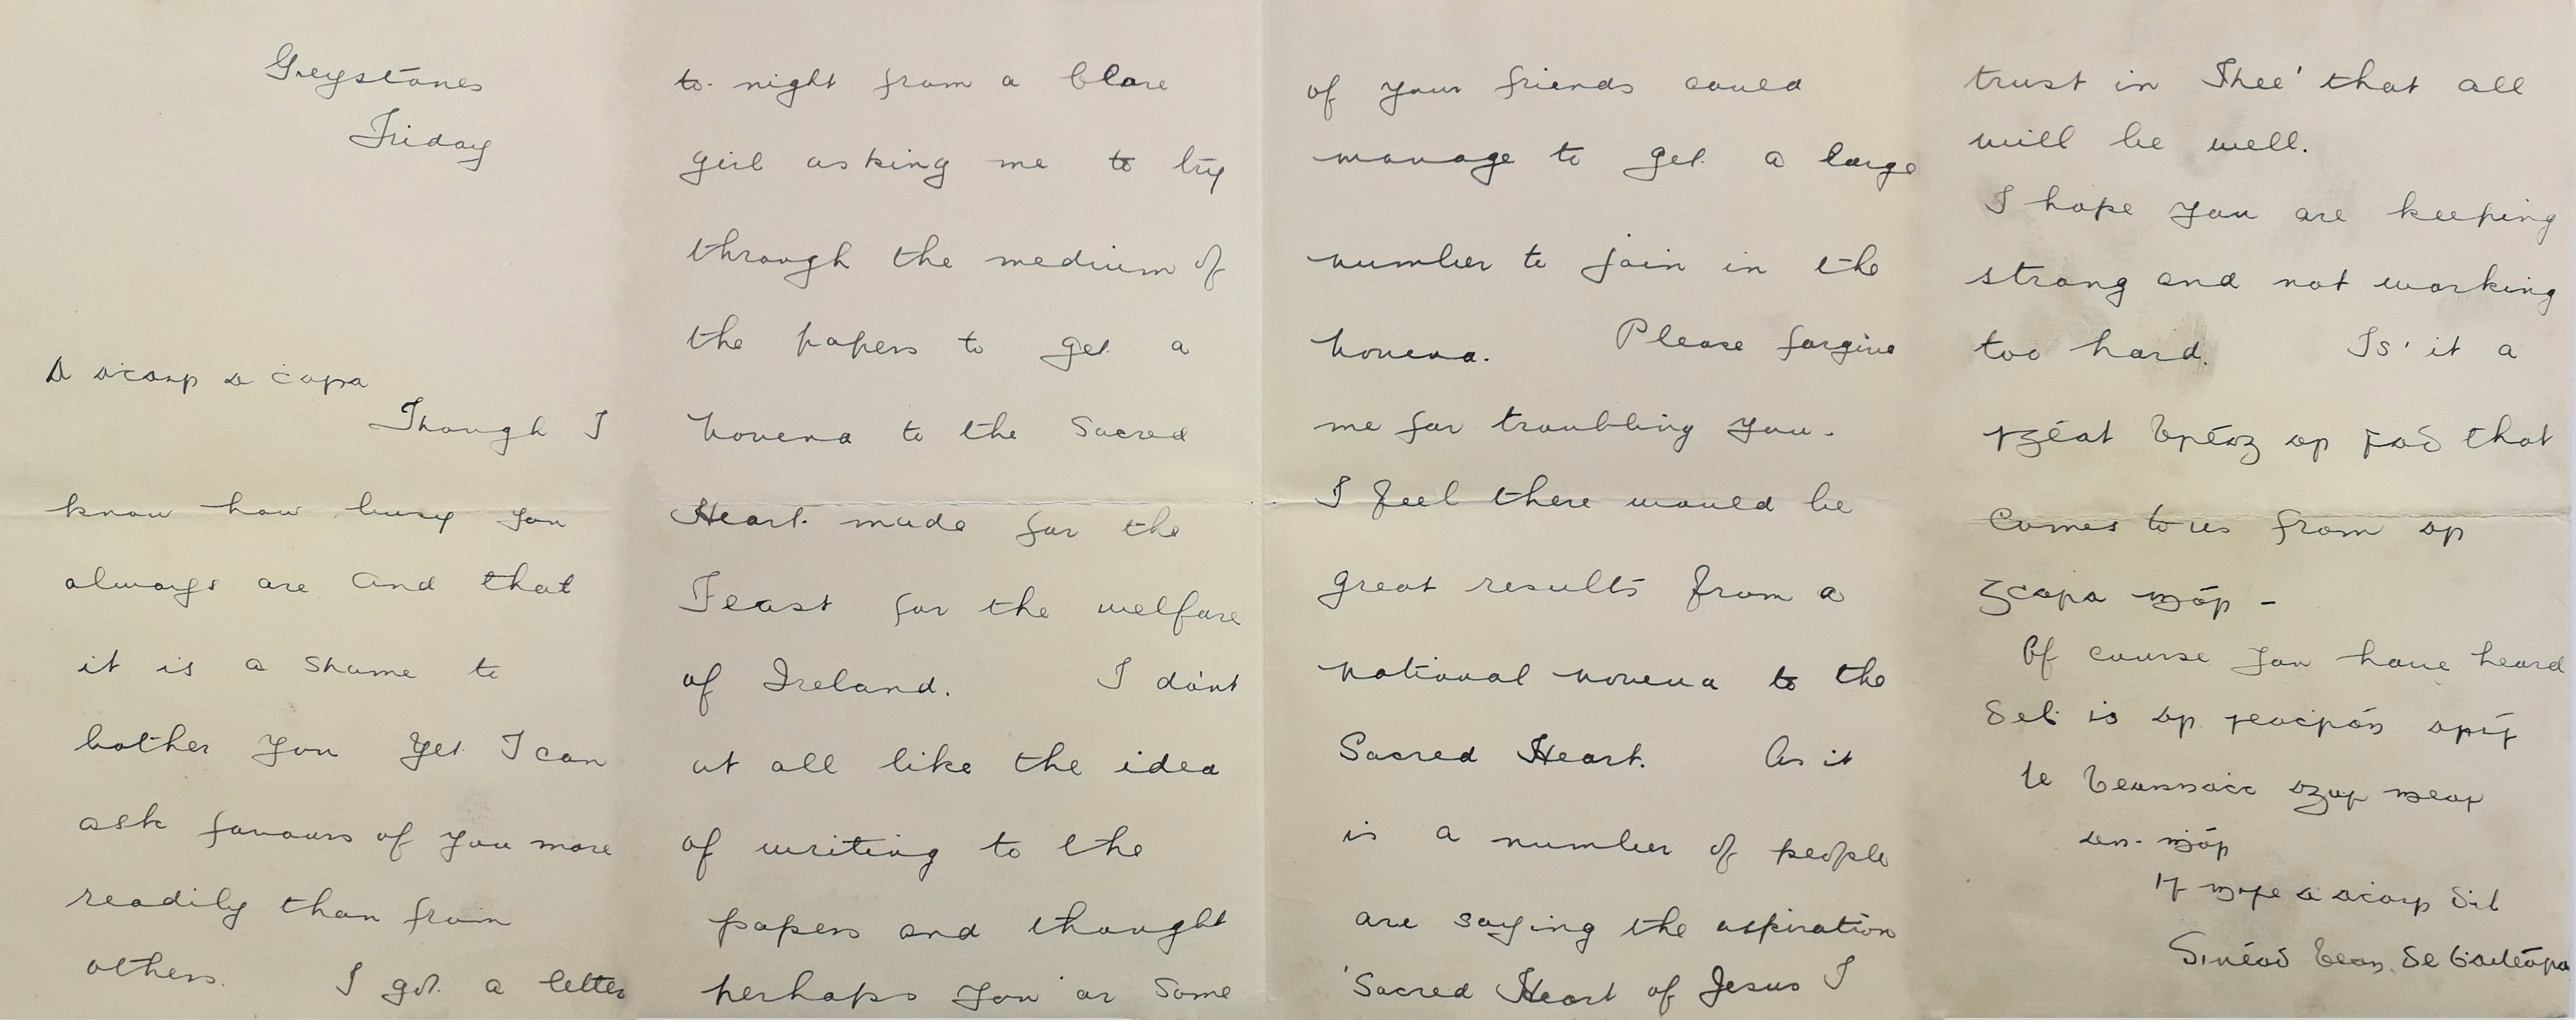 Greystones
Friday
A aṫair a ċara
Though I
know how busy you
always are and that
it is a shame to
bother you yet I can
ask favours of you more
readily than from
others. I got a letter
to-night from a Clare
girl asking me to try
through the medium of
the papers to get a
novena to the Sacred
Heart made for the
Feast for the welfare
of Ireland. I don't
at all like the idea
of writing to the
papers and thought
perhaps you or some
of your friends could
manage to get a large
number to join in the
novena. Please forgive
me for troubling you.
I feel there would be
great results from a
national novena to the
Sacred Heart. As it
is a number of people
are saying the aspiration
'Sacred Heart of Jesus I
trust in Thee' that all
will be well.
I hope you are keeping
strong and not working
too hard. Is it a
sgéal bréag ar fad that
comes to us from ar
gcara mór -
Of course you have heard
Dev. is ar seaċrán arís
le beannaċt agus meas
an-ṁór
Is mise a aṫair dil
Sinéad bean de Ḃailéara